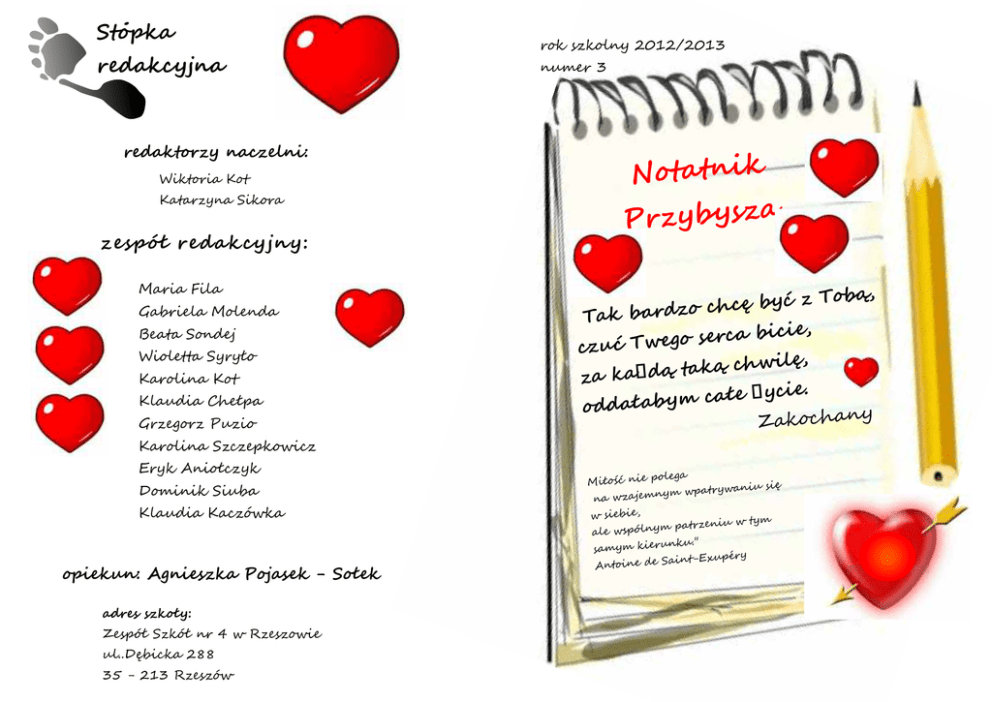 Stópka
redakcyjna
redaktorzy naczelni:
Wiktoria Kot
Katarzyna Sikora
zespół redakcyjny:
Maria Fila
Gabriela Molenda
Beata Sondej
Wioletta Syryło
Karolina Kot
Klaudia Chełpa
Grzegorz Puzio
Karolina Szczepkowicz
Eryk Aniołczyk
Dominik Siuba
Klaudia Kaczówka
opiekun: Agnieszka Pojasek - Sołek
adres szkoły:
Zespół Szkół nr 4 w Rzeszowie
ul..Dębicka 288
35 - 213 Rzeszów
rok szkolny 2012/2013
numer 3
Notatnik
Przybysza
Tak bardzo chcę być z Tobą,
czuć Twego serca bicie,
za ka▯dą taką chwilę,
oddałabym całe ▯ycie.
Zakochany
Miłość nie polega
na wzajemnym wpatrywaniu się
w siebie,
ale wspólnym patrzeniu w tym
samym kierunku."
Antoine de Saint-Exupéry